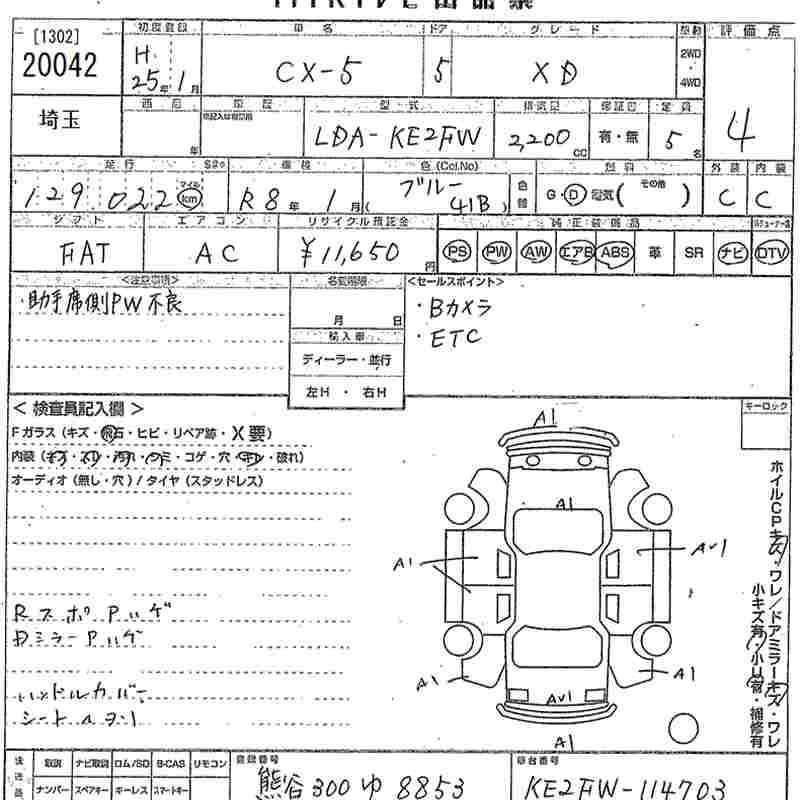 [1302]
20042
初度登録
H 25年1月
車名
CX-5
ドア
5
グレード
XD
駆動
2WD
・
4WD
評価点
4
埼玉
年
車歴
型式
LDA-KE2FW
排気量
2,200 cc
保証書
有・無
定員
5名
走行
129,022
マイル
km
車検
R8年1月
色(Col.No)
ブルー
41B
色替
燃料
G・D・電気( その他 )
外装
C
内装
C
シフト
FAT
エアコン
AC
リサイクル預託金
¥11,650円
純正装備品
PS PW AW エアB ABS 革 SR ナビ DTV
<注意事項>
・助手席側PW不良
名変期限
月 日
輸入車
ディーラー・並行
左H ・ 右H
<セールスポイント>
・Bカメラ
・ETC
<検査員記入欄>
Fガラス(キズ・飛石・ヒビ・リペア跡・X要)
内装(キズ・スレ・汚れ・シミ・コゲ・穴・破れ)
オーディオ(無し・穴)/タイヤ(スタッドレス)
Rスポ Pハゲ
DミラーPハゲ
ハンドルカバー
キーロック
A1
A1
A1
AV1
A1
A1
AV1
A1
ホイルCPキズ・ワレ/ドアミラーキズ・ワレ
小キズ有・小凹有・補修有
後送品
取説 ナビ取説 ロム/SD B-CAS リモコン
ナンバー スペアキー キーレス スマートキー
登録番号
熊谷300ゆ8853
車台番号
KE2FW-114703